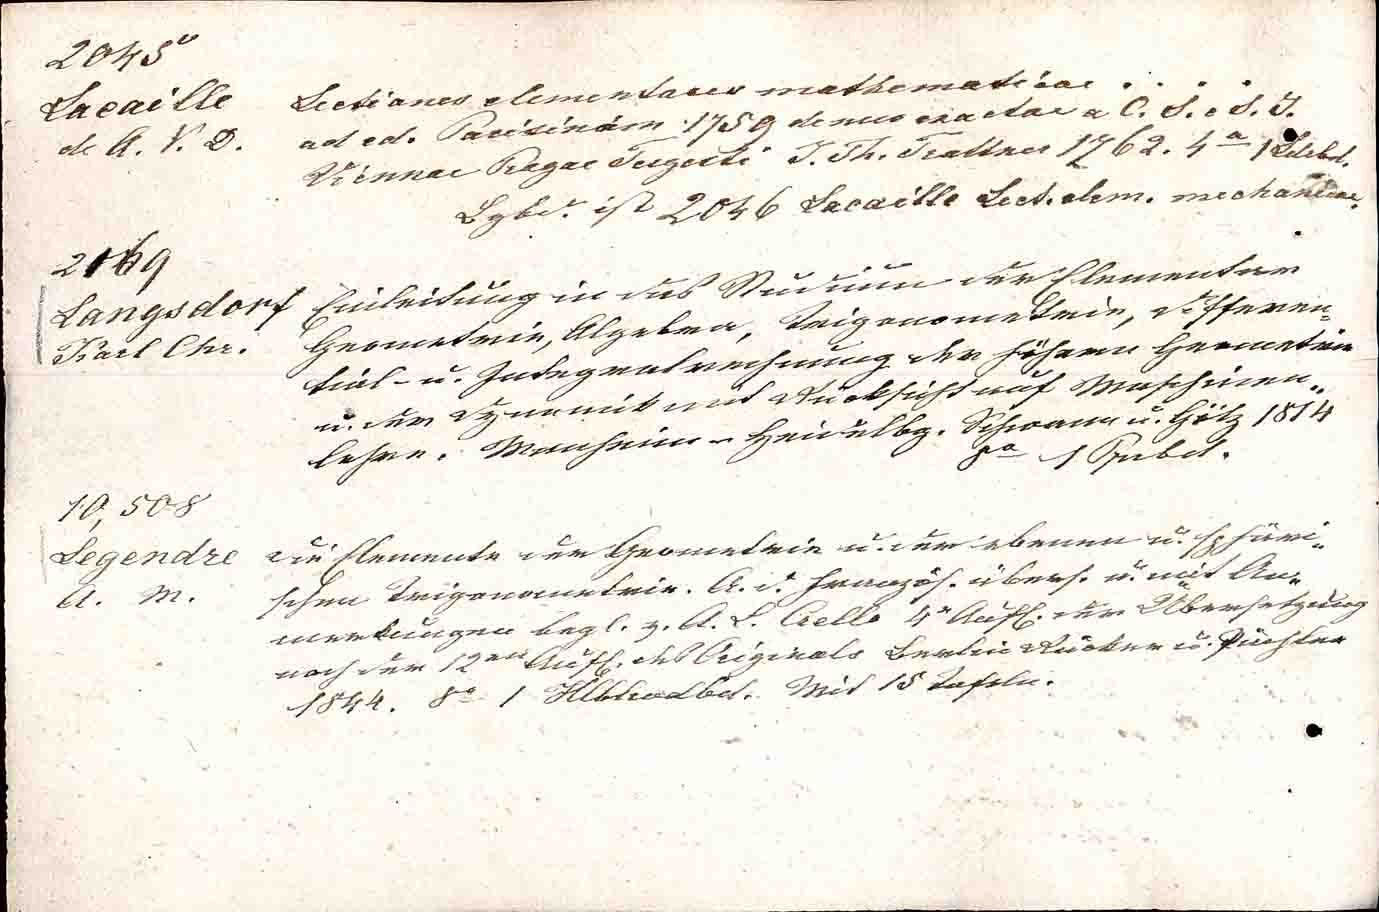 2045
Lacaille Lectiones elementares mathematicae . . . . .
de A. V. D. ad ed. Parisinam 1759 denuo exactae a C. S. e S. J.
Viennae Pragae Tergesti J. Th. Trattner 1762. 4° 1
Bgbd. ist 2046 Lacaille Lect. elem. mechanicae.
2169
Langsdorf Einleitung in das Studium der Elementar
Karl Chr. Geometrie, Algebra, Trigonometrie, Differen-
tial- u. Integralrechnung der höhern Geometrie
u. der Dynamik mit Rücksicht auf Maschinen-
lehre. Manheim u Heidelbg. Schwann u. Götz 1814
8° 1 Ppbd.
10,508
Legendre Die Elemente der Geometrie u. der ebenen u. sphäri-
A. M. schen Trigonometrie. A. d. Französ. übers. u. mit An-
merkungen begl. v. A. L. Crelle 4° Aufl. der Übersetzung
nach der 12ten Aufl. des Originals Berlin Rücker u. Püchler
1844. 8° 1 Hlblwdbd. Mit 15 Tafeln.